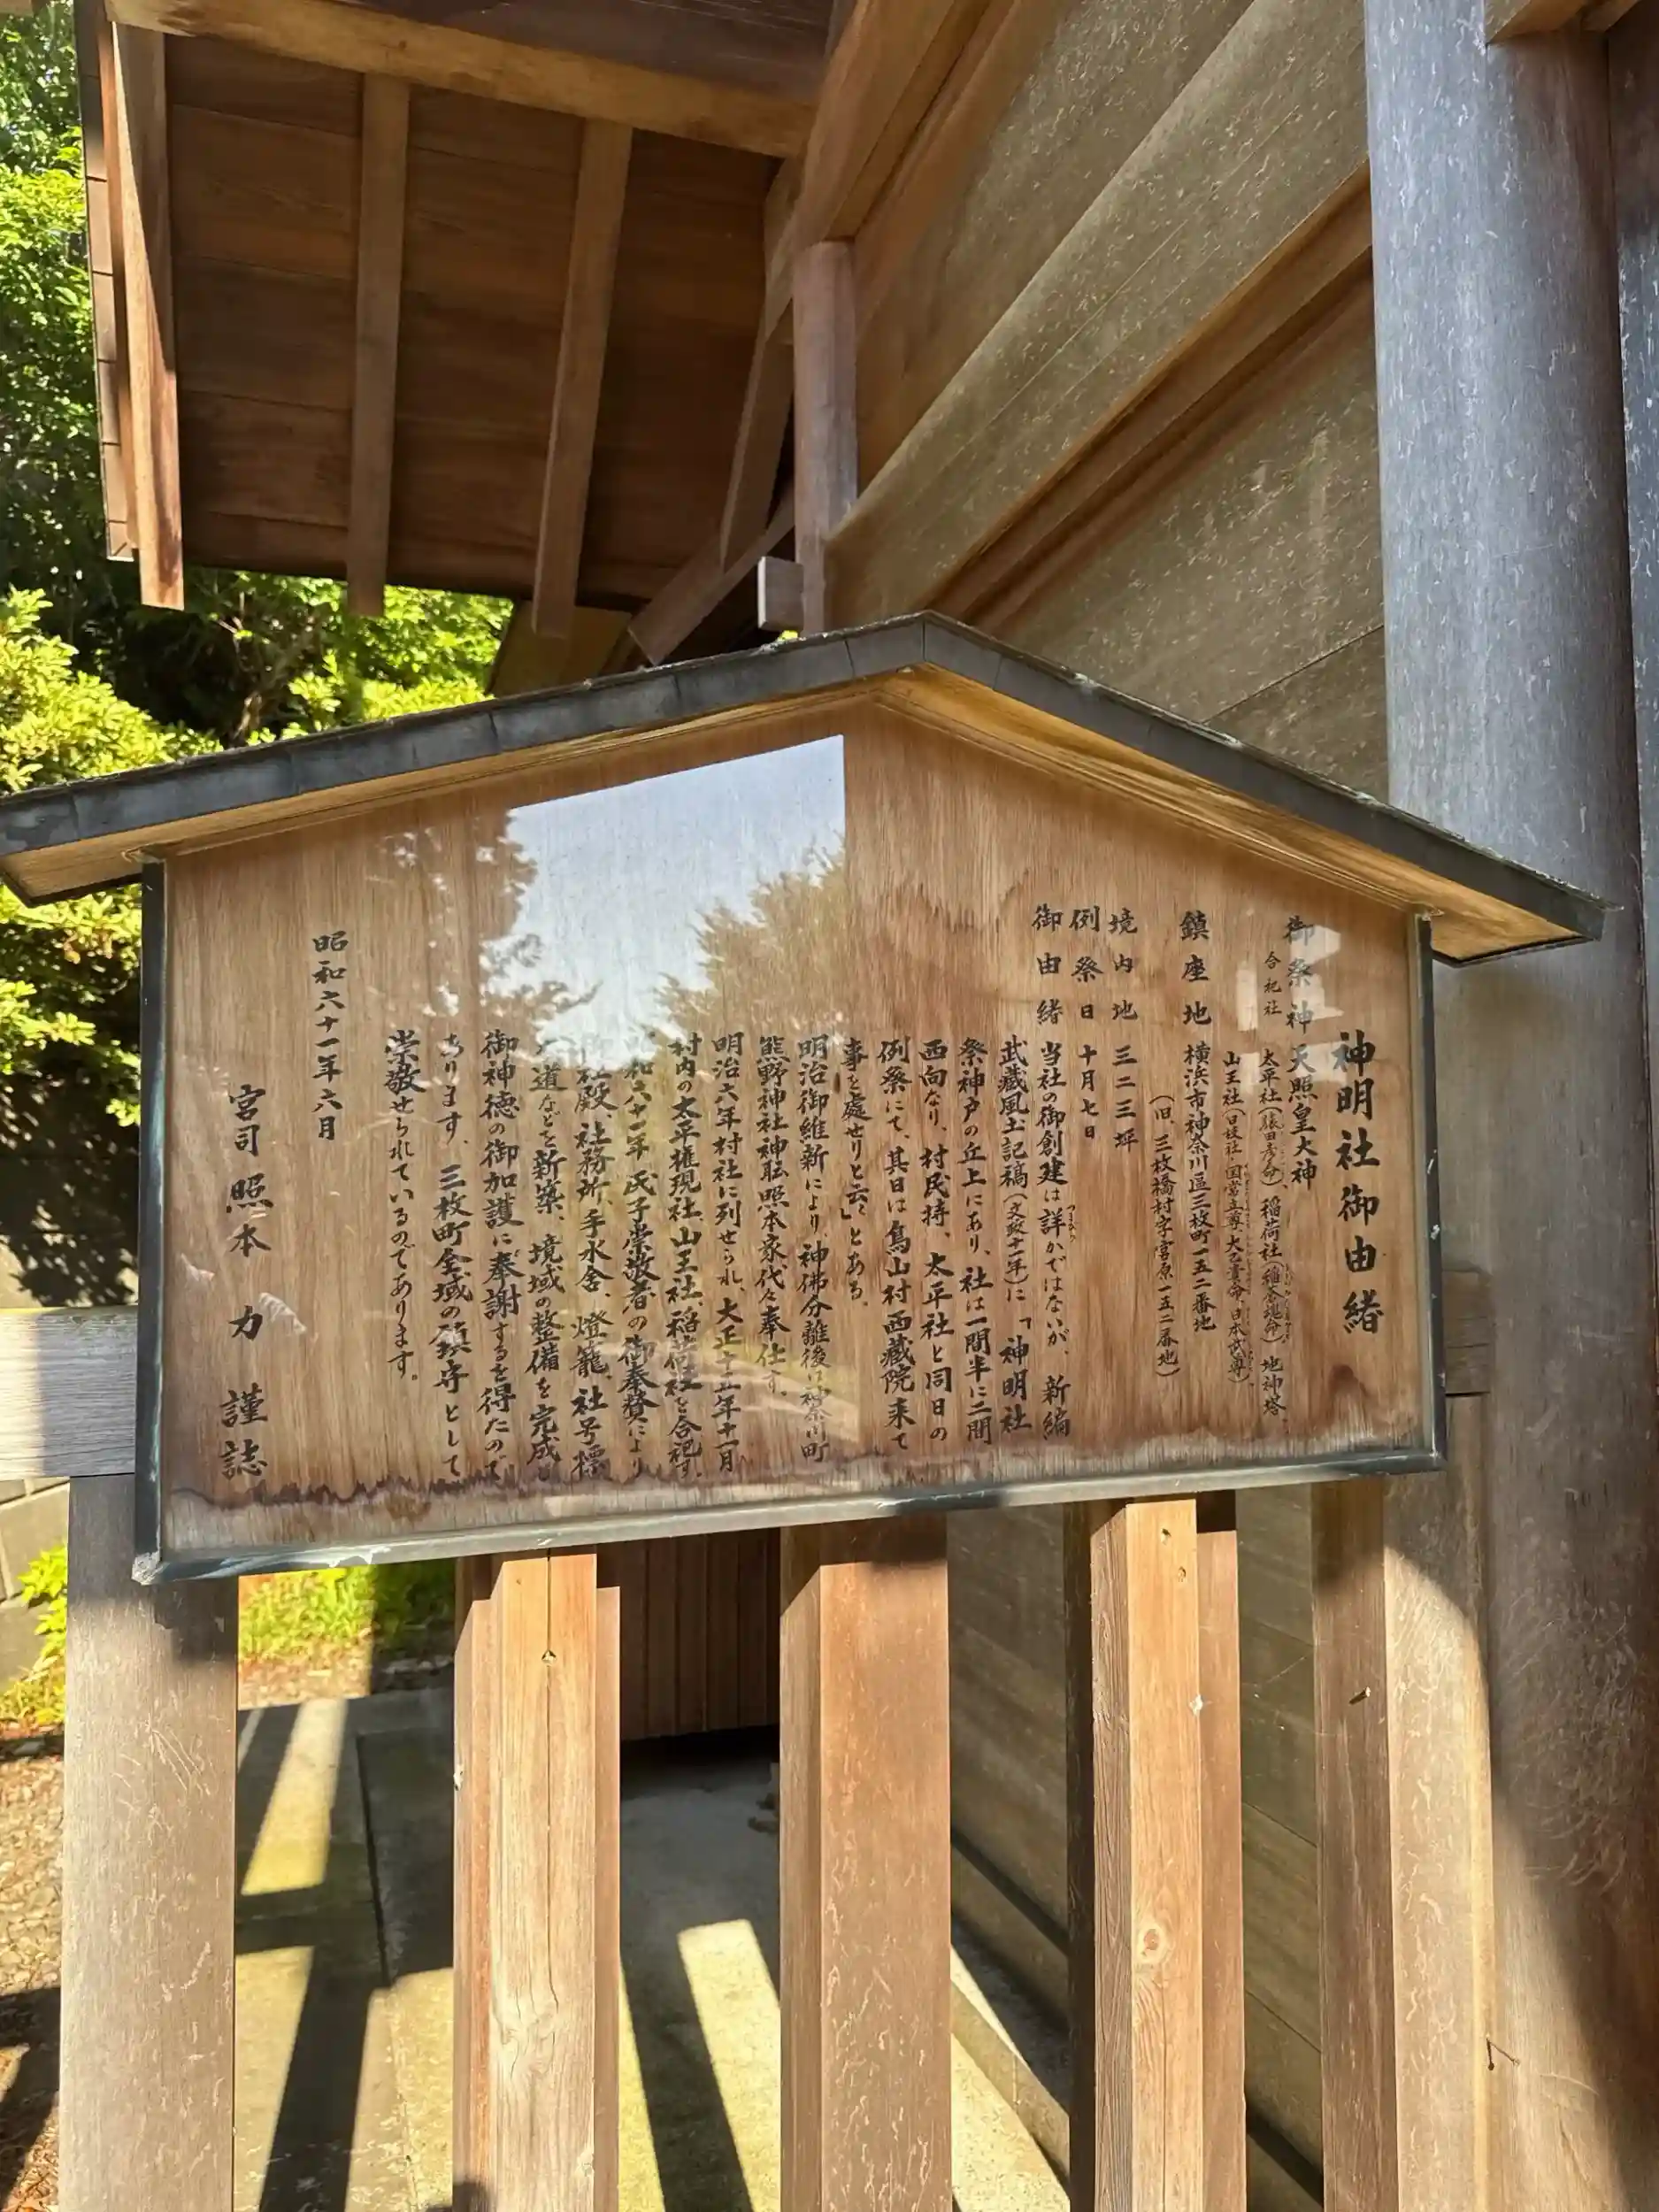 神明社御由緒
御祭神 天照皇大神
合祀社 太平社(猿田彦命)、稲荷社(稲倉魂命)、地神塔
山王社(日枝社・国常立尊、大己貴命、日本武尊)、
鎮座地 横浜市神奈川區三枚町一五二番地
(旧、三枚橋村字宮原一五二番地)
境内地 三二三坪
例祭日 十月七日
御由緒 当社の御創建は詳かではないが、新編
武蔵風土記稿(文政十一年)に「神明社
祭神戸の丘上にあり、社は一間半に二間
西向なり、村民持、太平社と同日の
例祭にて、其日は鳥山村西蔵院来て
事を處せりと云々」とある。
明治御維新により、神佛分離後は神奈川町
熊野神社神主照本家代々奉仕す。
明治六年村社に列せられ、大正十五年十一月
村内の太平権現社、山王社、稲荷社を合祀す。
昭和六十一年氏子崇敬者の御奉賛により
御社殿、社務所、手水舎、燈籠、社号標
道などを新築、境域の整備を完成し
御神徳の御加護に奉謝するを得たので
あります。三枚町全域の鎮守として
崇敬せられているのであります。
昭和六十一年六月
宮司 照本 力 謹誌